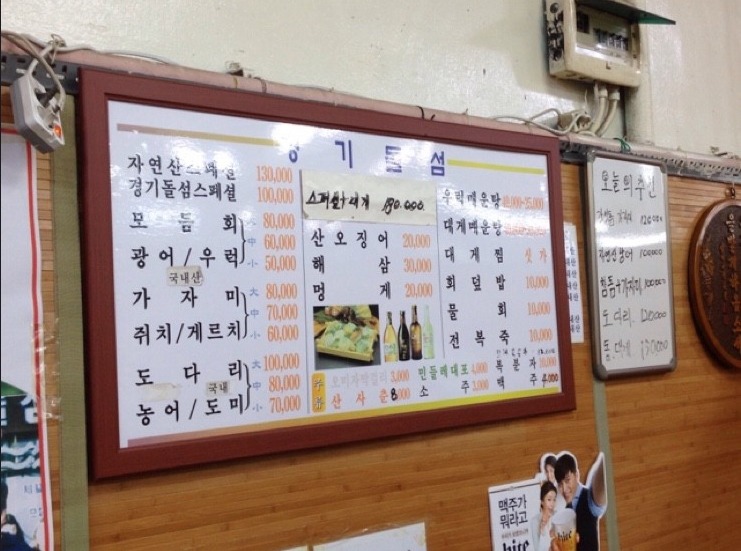 경기돌섬
자연산스페셜 130,000
경기돌섬스페셜 100,000
모듬회 大 80,000
광어/우럭 中 60,000
小 50,000
국내산
가자미 大 80,000
中 70,000
쥐치/게르치 小 60,000
도다리 大 100,000
국내 中 80,000
농어/도미 小 70,000
130,000
산오징어 20,000
해삼 30,000
멍게 20,000
우럭매운탕
대게매운탕
대게찜 싯가
회덮밥 10,000
물회 10,000
전복죽 10,000
오미자막걸리 3,000
민들레대포 4,000
복분자 10,000
산사춘 8,000
소주 3,000
맥주 4,000
오늘의추천
120,000
자연산광어 100,000
100,000
도다리 120,000
130,000
맥주가
뭐라고
hite